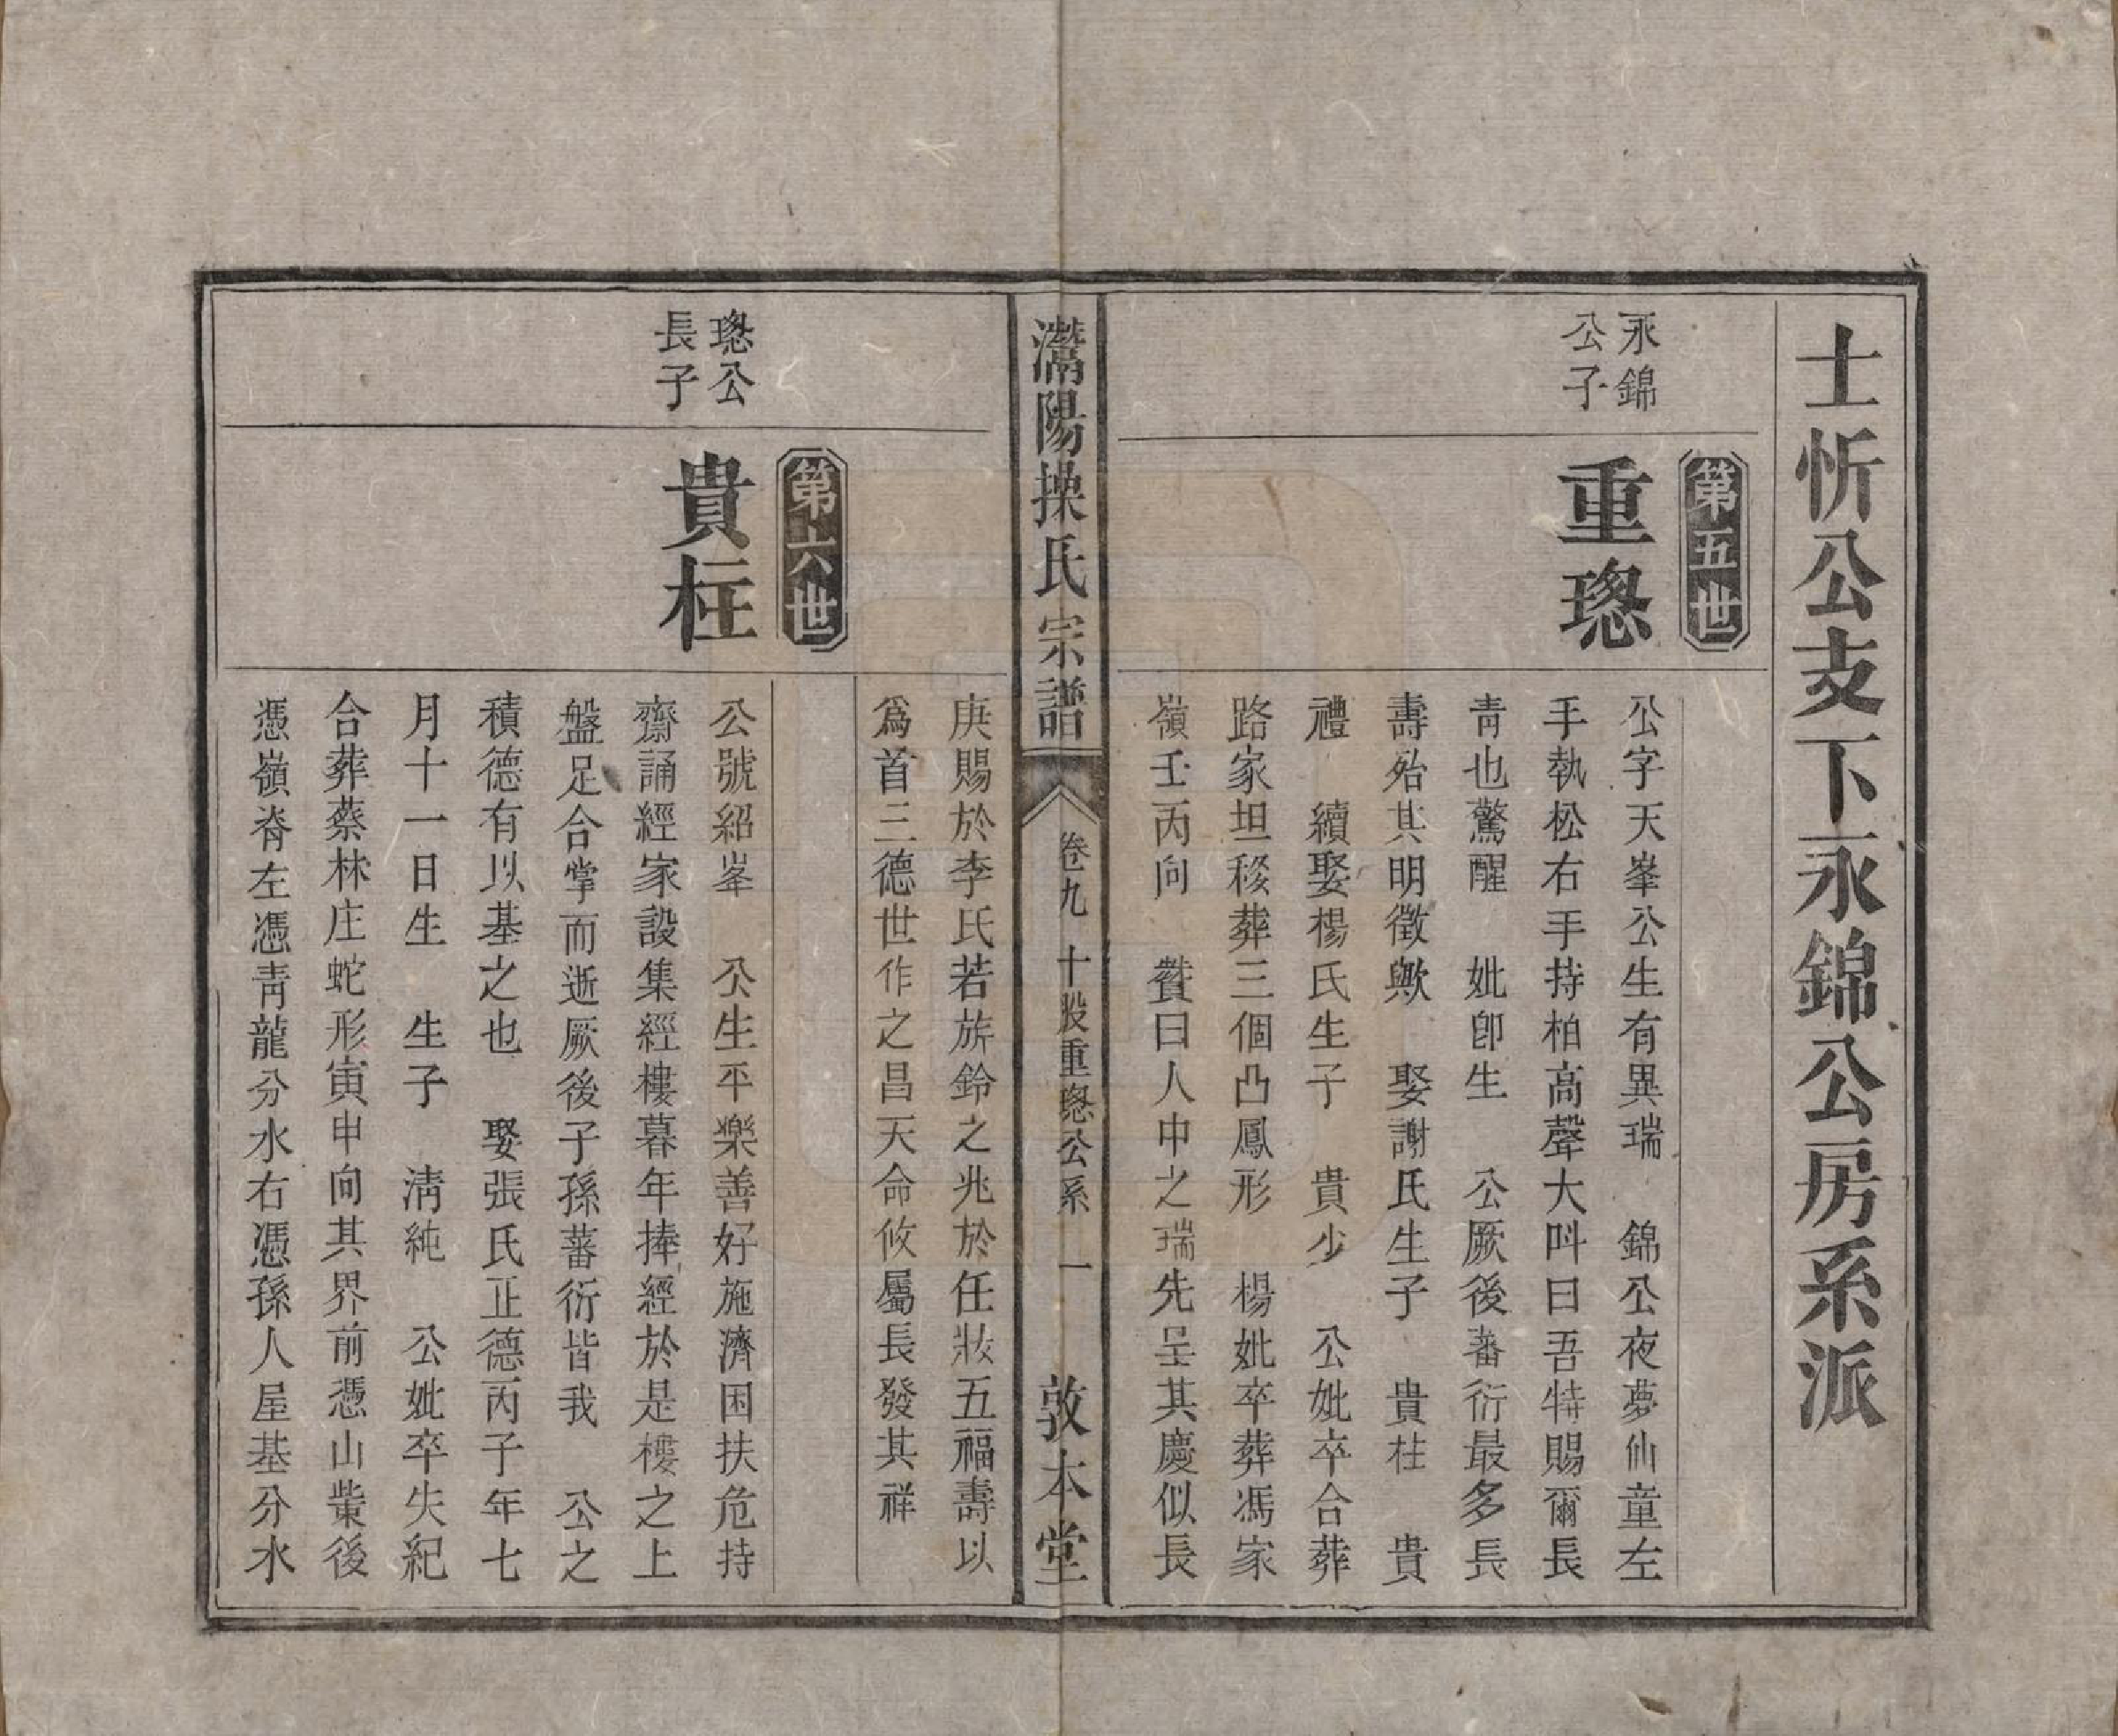 士忻公支下永錦公房系派
第五世
永錦
公子
重璁
公字天峯公生有異瑞　錦公夜夢仙童左
手執松右手持柏高聲大呌曰吾特賜爾長
靑也驚醒　妣卽生　公厥後蕃衍最多長
壽殆其明徵歟　娶謝氏生子　貴柱　貴
禮　續娶楊氏生子　貴少　公妣卒合葬
路家坦移葬三個凸鳳形　楊妣卒葬馮家
嶺壬丙向　贊曰人中之瑞先呈其慶似長
灊陽操氏宗譜
卷九　十股重璁公系　一
敦本堂
庚賜於李氏若旂鈴之兆於任妝五福壽以
爲首三德世作之昌天命攸屬長發其祥
第六世
璁公
長子
貴柱
公號紹峯　公生平樂善好施濟困扶危持
齋誦經家設集經樓暮年捧經於是樓之上
盤足合掌而逝厥後子孫蕃衍皆我　公之
積德有以基之也　娶張氏正德丙子年七
月十一日生　生子　淸純　公妣卒失紀
合葬蔡林庄蛇形寅申向其界前憑山業後
憑嶺脊左憑靑龍分水右憑孫人屋基分水